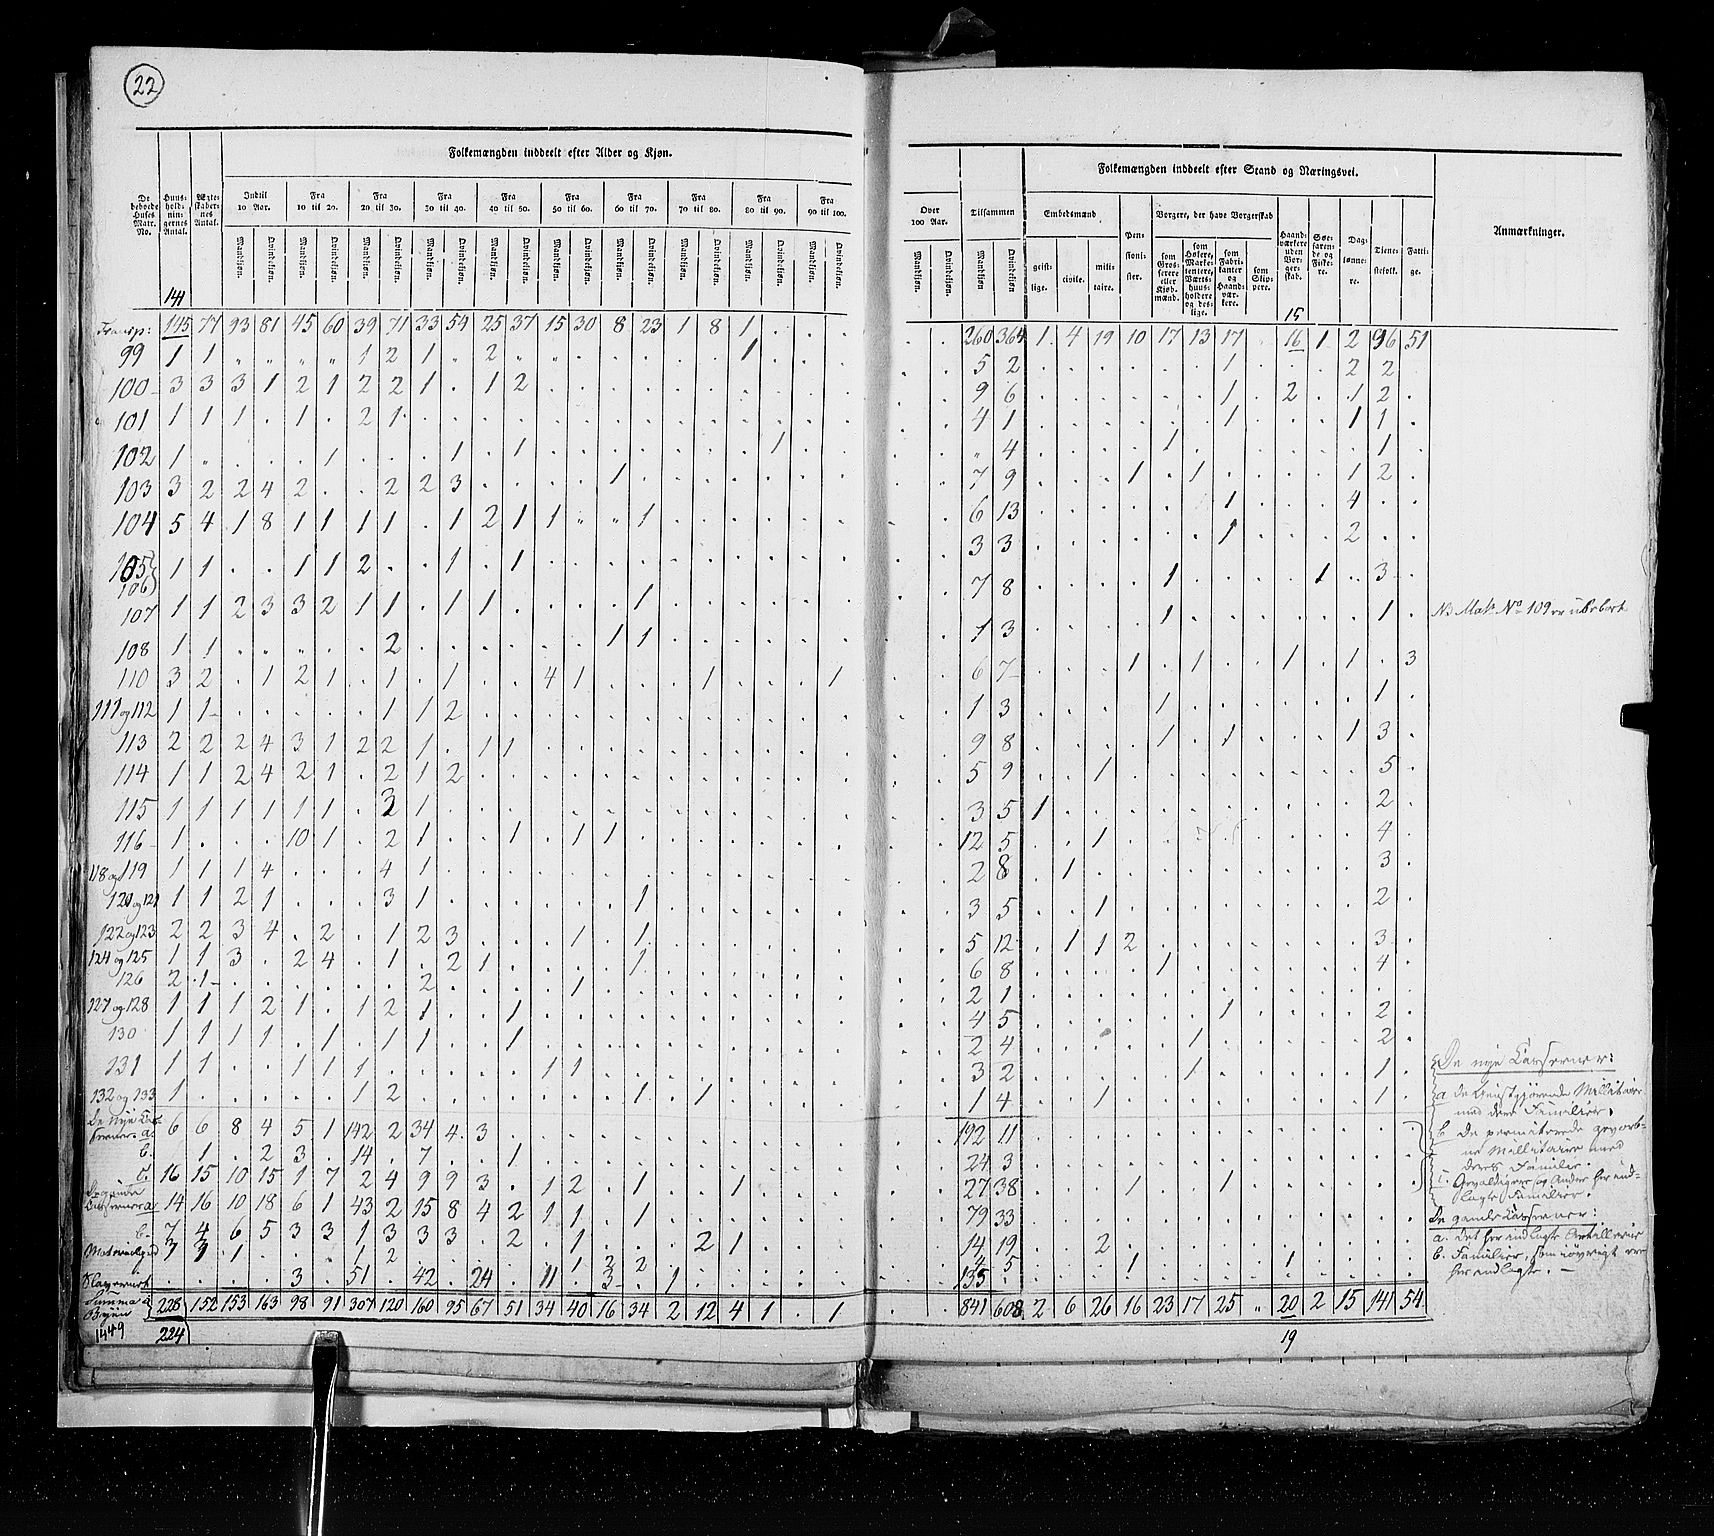 22
Folkemængden inddeelt efter Alder og Kjøn.
De beboede Huses Matr. No. | Huus-hold-nin-gernes Antal. | Ægte-skaber-nes Antal. | Indtil 10 Aar. | Fra 10 til 20. | Fra 20 til 30. | Fra 30 til 40. | Fra 40 til 50. | Fra 50 til 60. | Fra 60 til 70. | Fra 70 til 80. | Fra 80 til 90. | Fra 90 til 100.
Mandkjøn. Qvindekjøn. Mandkjøn. Qvindekjøn. Mandkjøn. Qvindekjøn. Mandkjøn. Qvindekjøn. Mandkjøn. Qvindekjøn. Mandkjøn. Qvindekjøn. Mandkjøn. Qvindekjøn. Mandkjøn. Qvindekjøn. Mandkjøn. Qvindekjøn. Mandkjøn. Qvindekjøn.
141
Transp: 145 77 93 81 45 60 39 71 33 54 25 37 15 30 8 23 1 8 1 . . .
99 1 1 " " " " 1 2 1 " 2 " " " " " . . 1 . . .
100 3 3 3 1 2 1 2 2 1 . 1 2 . . . . . . . . . .
101 1 1 1 . 1 . 2 1 . . . . . . . . . . . . . .
102 1 " . . . 1 . . . 1 . 1 . . . . . . . 1 . .
103 3 2 2 4 2 . . 2 2 3 . . . . 1 . . . . . . .
104 5 4 1 8 1 1 1 1 . 1 2 1 1 " " 1 . . . . . .
105 106 1 1 . . 1 1 2 . . 1 . 1 . . . . . . . . . .
107 1 1 2 3 3 2 1 1 . 1 1 . . . . 1 . . . . . .
108 1 1 . . . . . 2 . . . . . . 1 1 . . . . . .
110 3 2 . 1 2 1 . 1 . 1 . . 4 1 . . . 1 . . . 1
111 og 112 1 1 . . . . . 1 1 2 . . . . . . . . . . . .
113 2 2 2 4 3 1 2 2 1 . 1 1 . . . . . . . . . .
114 1 1 2 4 2 1 . 2 1 2 . . . . . . . . . . . .
115 1 1 1 1 1 1 . 3 1 . . . . . . . . . . . . .
116 1 . . . 10 1 . 2 1 . . 1 . 1 1 . . . . . . .
118 og 119 1 1 1 4 . . . 4 1 . . . . . . . . . . . . .
120 og 121 1 1 2 1 . . . 3 1 . . . . . . 1 . . . . . .
122 og 123 2 2 3 4 . 2 . 1 2 3 . . . 1 . 1 . . . . . .
124 og 125 1 1 3 . 2 4 . 1 . 2 1 . . . . 1 . . . . . .
126 2 1 . . . . . . 2 . . . . 1 . . . . . . . .
127 og 128 1 1 1 2 1 . 1 2 1 . . 1 . . . . . . . . . .
130 1 1 1 1 . 1 . 1 1 . . 1 . . . . . . . . . .
131 1 1 . . 1 1 1 . . . . . 1 1 . . . . . . . .
132 og 133 1 . . . . . 1 2 . . . . . . . 1 . 1 . . . .
De Nye Cas-
serner. a. 6 6 8 4 5 1 142 2 34 4 3 . . . . . . . . . . .
b. . 1 . 2 3 . 14 . 7 . . 1 . . . . . . . . . .
c. 16 15 10 15 1 7 2 4 9 9 3 . 1 2 . 1 . . 1 . . .
Casserner a. 14 16 10 18 6 1 43 2 15 8 4 2 1 1 . 1 . . . . . .
b. 7 4 6 5 3 3 1 3 3 3 . 2 . 1 . . . 2 1 . . .
Slaveriet . . . . 3 . 51 . 42 . 24 . 11 . 3 . 1 . . . . .
Summa i
Byen 228 152 153 163 98 91 307 120 160 95 67 51 34 40 16 34 2 12 4 1 . 1
1449 224
Over 100 Aar. | Tilsammen | Folkemængden inddeelt efter Stand og Næringsvei. | Anmærkninger.
Mandkjøn. Qvindekjøn. | Mandkjøn Qvindekjøn
Embedsmænd | geist-lige. | civile. | mili-taire. | Pen-sioni-ster. | Borgere, der have Borgerskab | som Gros-serere eller Kjøb-mænd. | som Høkere, Marke-teniere, Værts-huus-holdere og des-lige. | som Fabri-kanter og Haand-vær-kere. | som Skip-pere. | Haand-værkere uden Bor-ger-skab. | Søe-faren-de og Fiske-re. | Dag-lønne-re. | Tiene-stefolk. | Fatti-ge.
15
. . 260 364 1 4 19 10 17 13 17 . 16 1 2 96 51
. . 5 2 . . . . . . 1 . . . 2 2 .
. . 9 6 . . . . . . 1 . 2 . 1 2 .
. . 4 1 . . . . . . 1 . . . 1 1 .
. . " 4 . . . . 1 . . . . . . 1 .
. . 7 9 . . . 1 . 1 . . . . 1 2 .
. . 6 13 . . . . . . 1 . . . 4 . .
. . 3 3 . . . . . . 1 . . . 2 . .
. . 7 8 . . . . 1 . . . . 1 . 3 .
. . 1 3 . . . . 1 . . . . . . 1 .
NB Mat: No 109 er ubebort
. . 6 7 . . . 1 . 1 . . 1 . 1 . 3
. . 1 3 . . . . 1 . . . . . . 1 .
. . 9 8 . . . . 1 . 1 . . . 1 3 .
. . 5 9 . . 1 . . . . . . . . 5 .
. . 3 5 1 . . . . . . . . . . 2 .
. . 12 5 . . 1 . . . . . . . . 4 .
. . 2 8 . 1 . . . . . . . . . 3 .
. . 3 5 . . 1 . . . . . . . . 2 .
. . 5 12 . 1 1 2 . . . . . . . 3 .
. . 6 8 . . . . 1 . . . . . . 4 .
. . 2 1 . . . . . . . . . . . . .
. . 4 5 . . . . . . 1 . . . . 2 .
. . 2 4 . . . . . 1 . . . . . 2 .
. . 3 2 . . . . . 1 . . . . . 1 .
. . 1 4 . . 1 . . . . . . . . 1 .
. . 192 11 . . . . . . . . . . . . .
. . 24 3 . . . . . . . . . . . . .
. . 27 38 . . . 1 . . 1 . . . . . .
. . 79 33 . . . . . . . . . . . . .
. . 14 19 . . 2 . . . . . . . . . .
. . 4 5 . . . 1 . . . . 1 . . . .
. . 135 . . . . . . . . . . . . . .
. . 841 608 2 6 26 16 23 17 25 " 20 2 15 141 54
19
De nye Casserner:
a de tienstgjørende Millitaire
med dere Familier.
b De permiterede gevorb-
ne Millitaire med
deres Familie.
c. Gevaldigere og Andre her ind-
lagte Familier.
De gamle Casserner:
a. Det her indlagte Artillerie
b. Familier, som iøvrigt ere
her indlagte. —